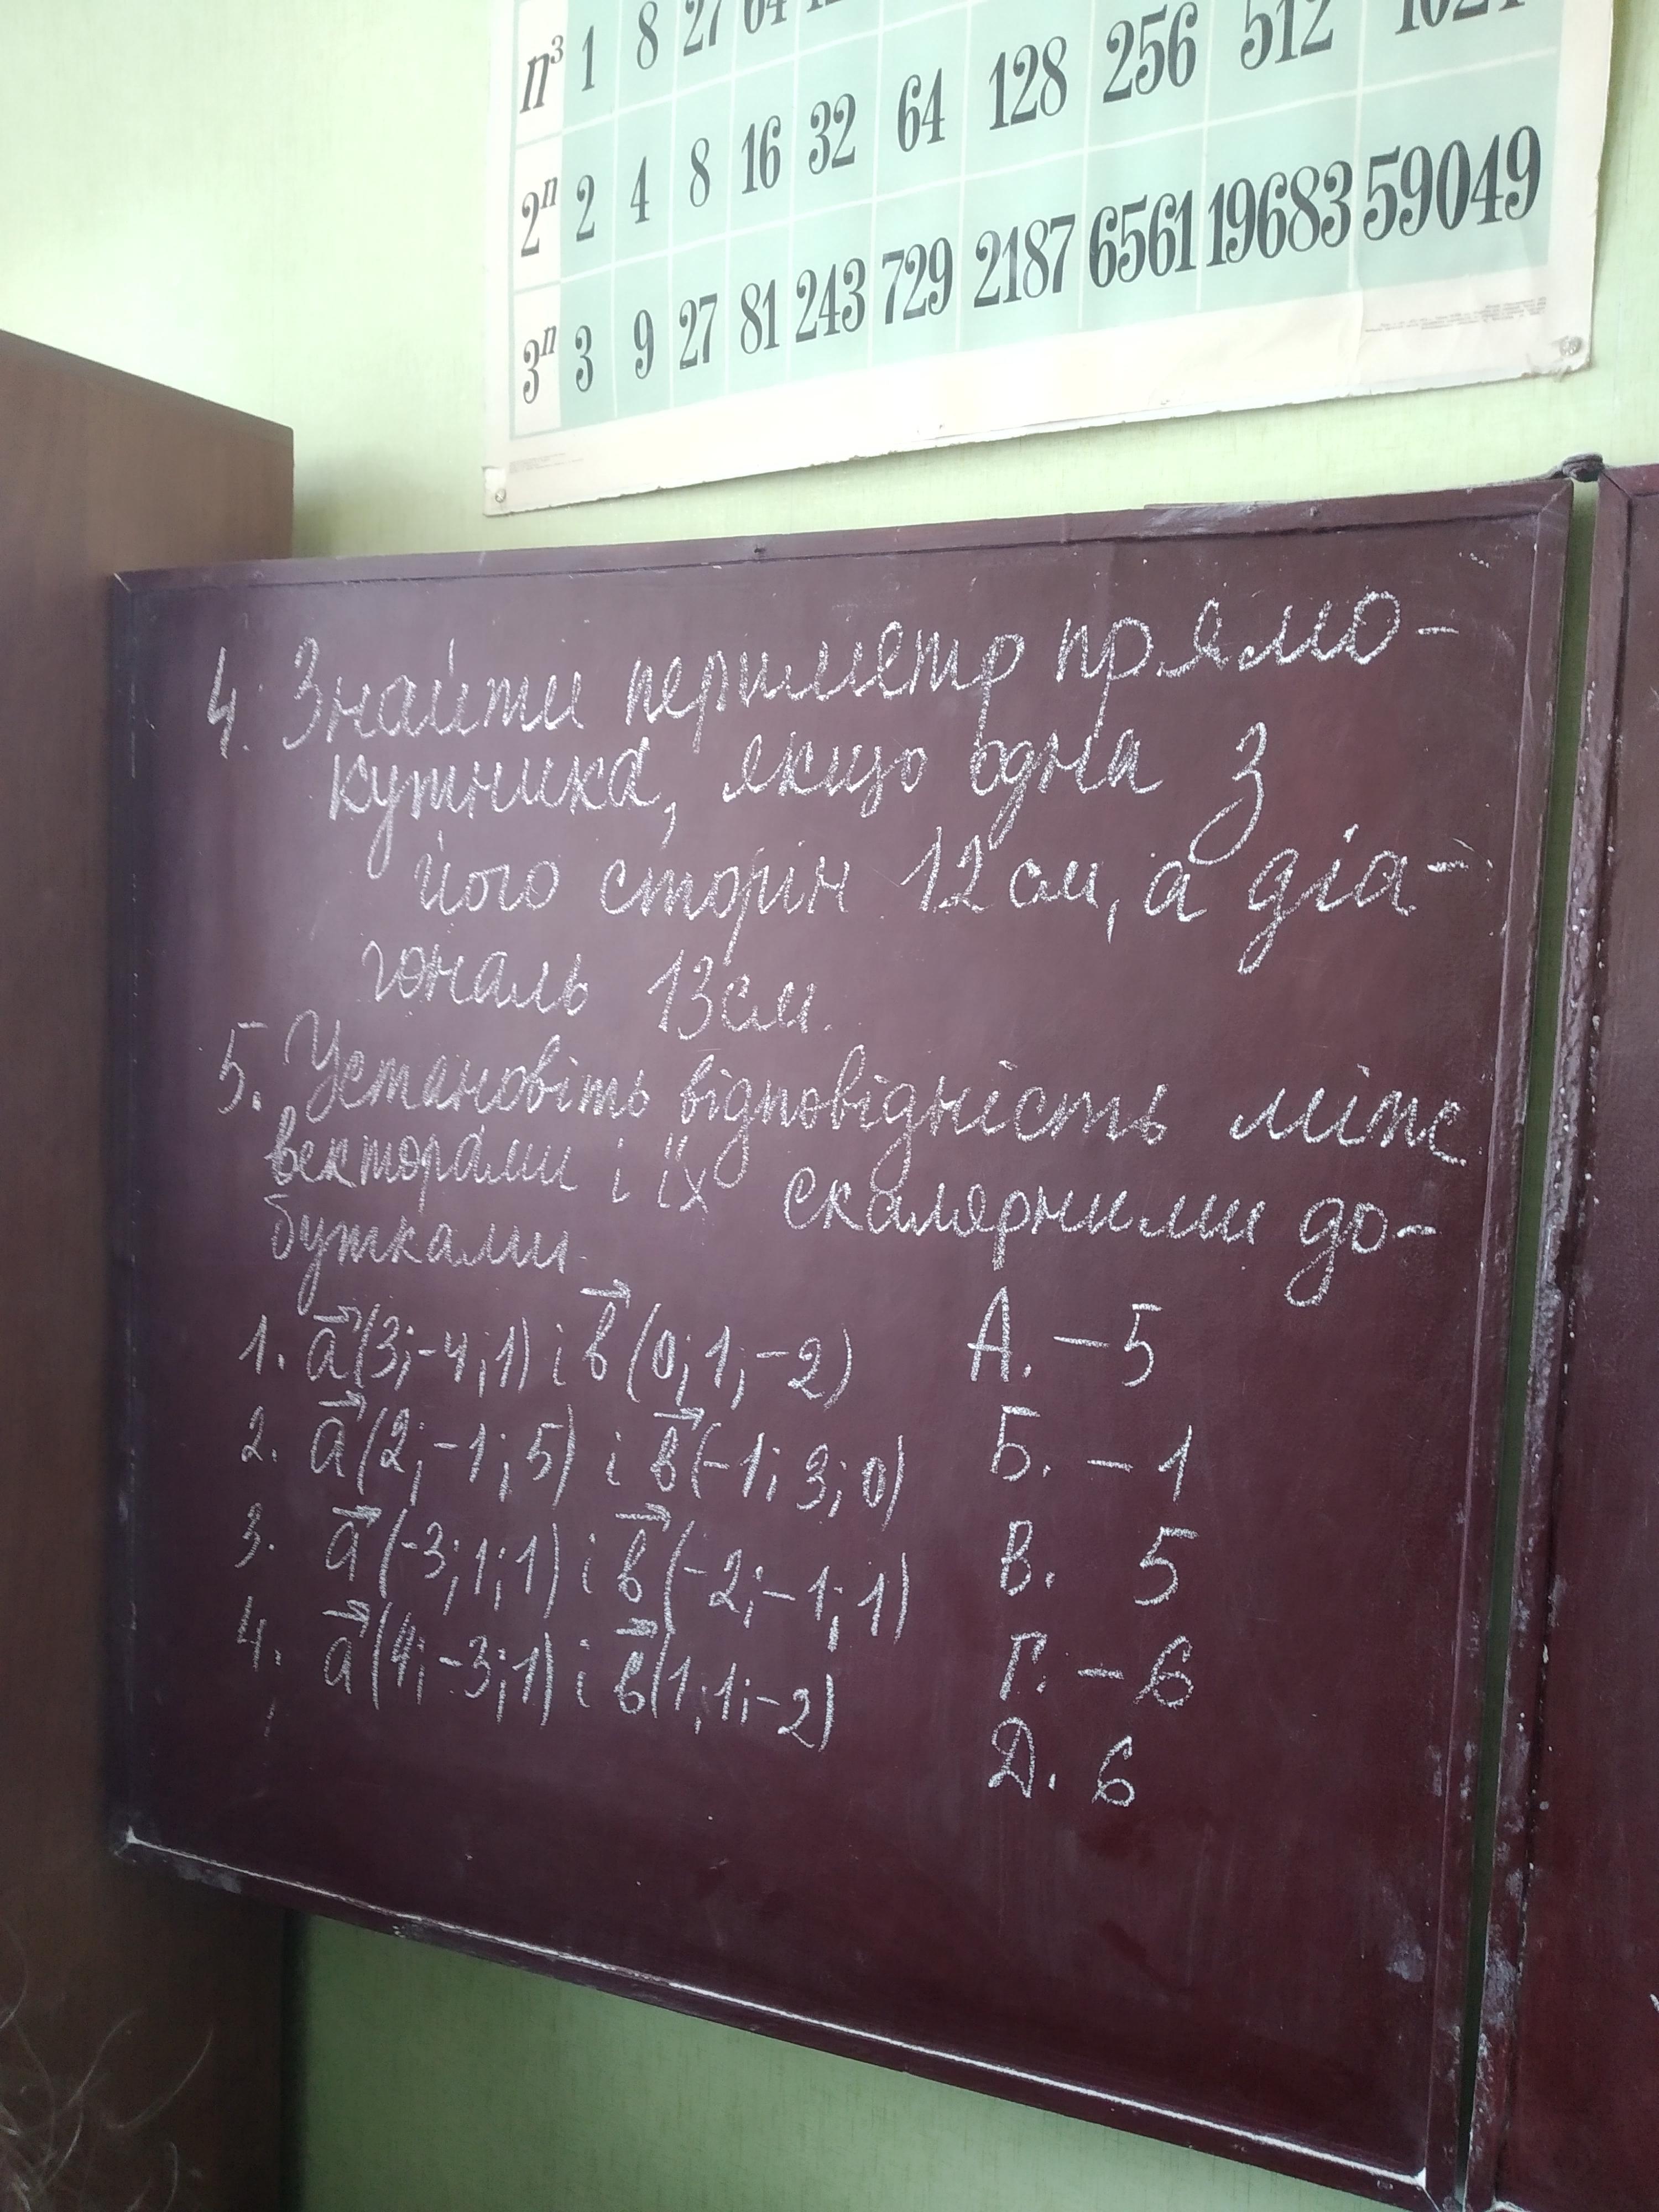 n³ 1 8 27 64
2ⁿ 2 4 8 16 32 64 128 256 512 1024
3ⁿ 3 9 27 81 243 729 2187 6561 19683 59049
4. Знайти периметр прямо-
кутника, якщо одна з
його сторін 12 см, а діа-
гональ 13 см.
5. Установіть відповідність між
векторами і їх скалярними до-
бутками.
1. a⃗(3; -4; 1) і b⃗(0; 1; -2) А. -5
2. a⃗(2; -1; 5) і b⃗(-1; 3; 0) Б. -1
3. a⃗(-3; 1; 1) і b⃗(-2; -1; 1) В. 5
4. a⃗(4; -3; 1) і b⃗(1; 1; -2) Г. -6
Д. 6